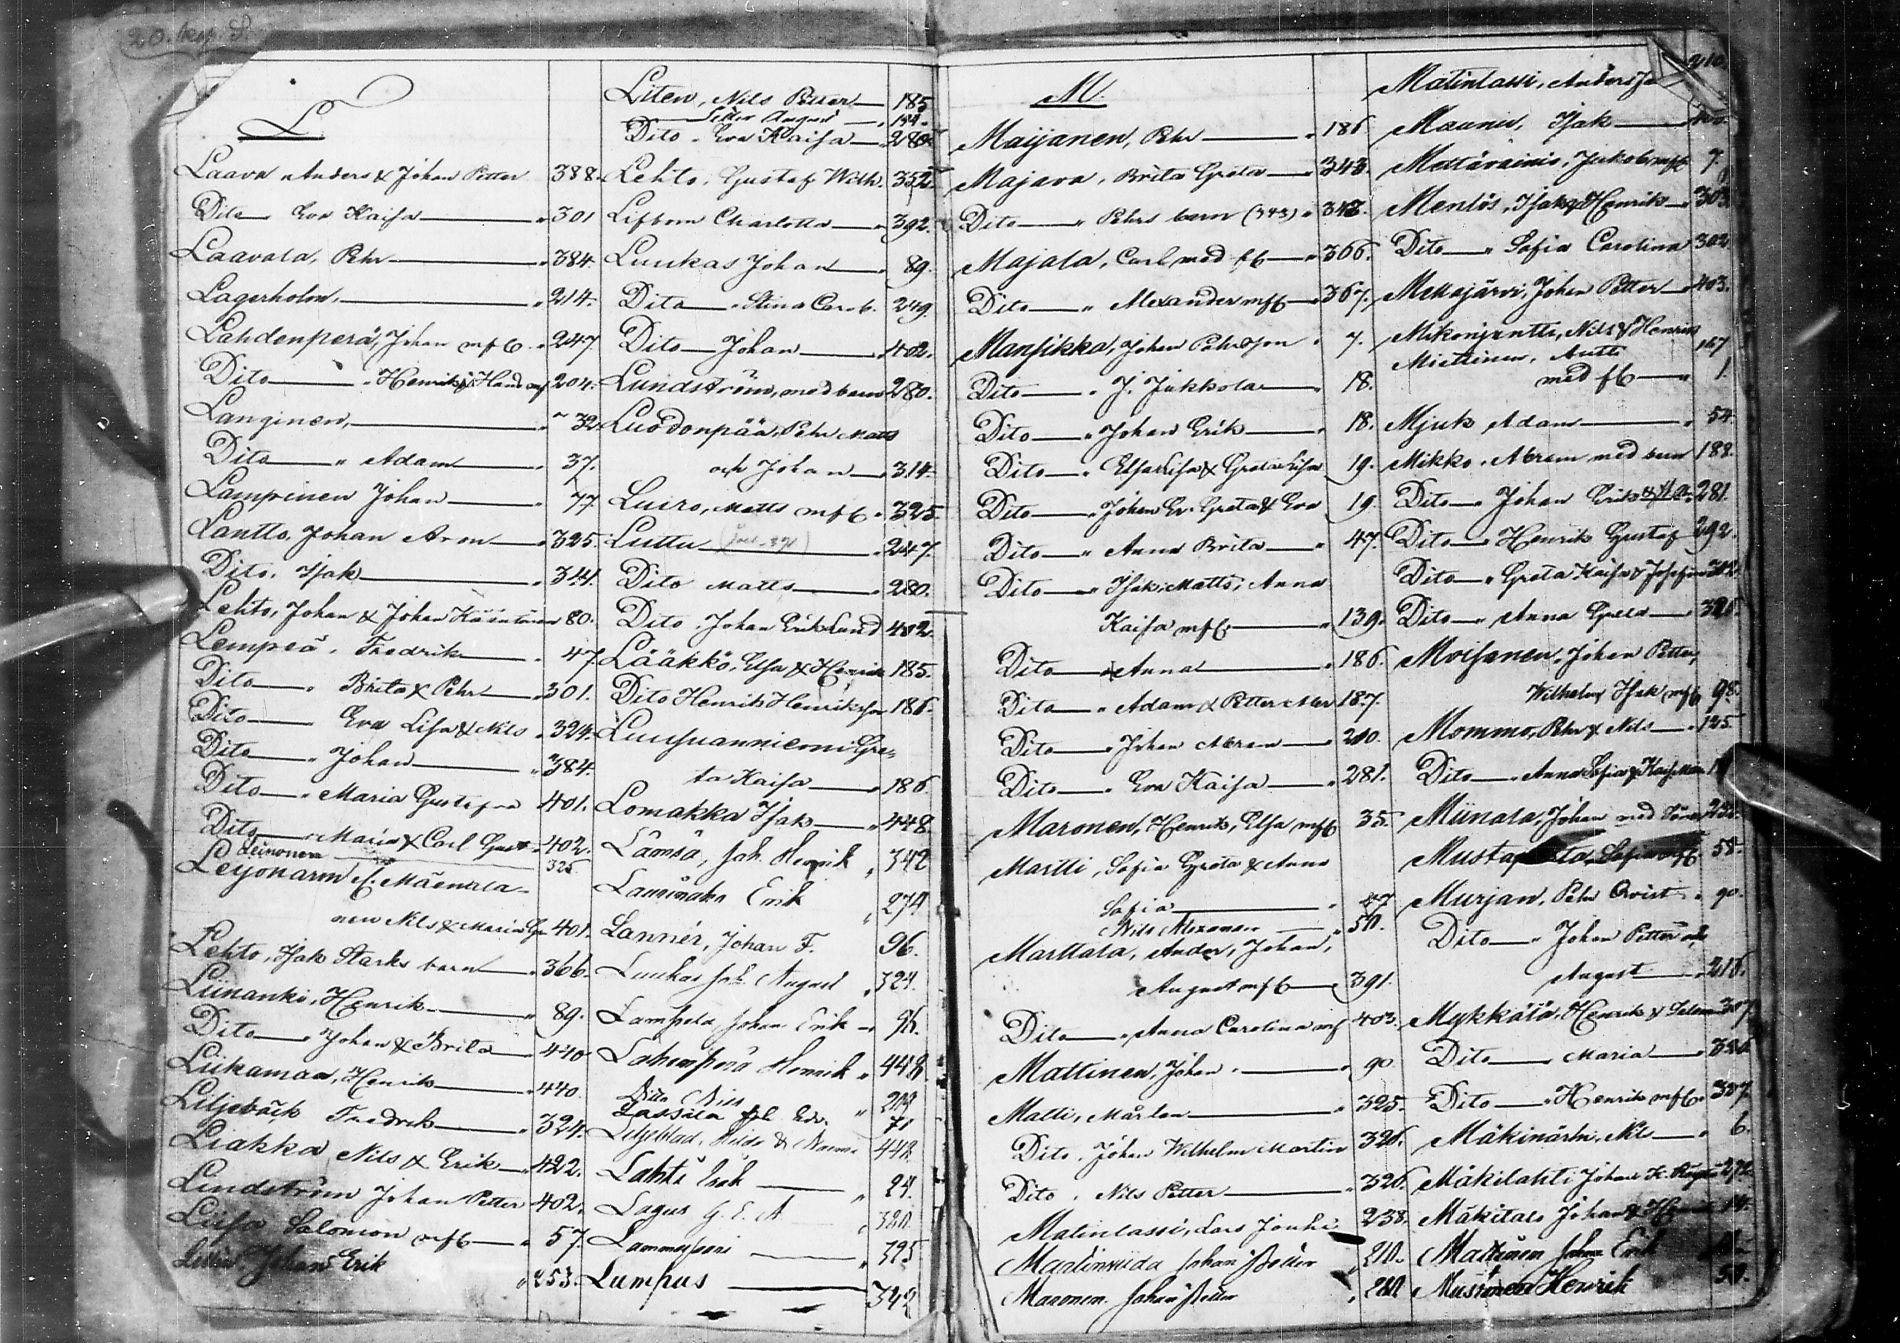 L
Laava Anders & Johan Petter 388.
Dito Eva Kaisa 301
Laavala, Pehr 384.
Lagerholm 214.
Lahdenperä, Johan mfl. 247
Dito Henrik & Hand mf 204.
Langinen, 32
Dito " Adam 37.
Lampinen Johan 77
Lantto, Johan Aron 325.
Dito. Isak 344.
Lehto, Johan & Johan 80.
Lempeä. Fredrik 47.
Dito Brita & Pehr 301.
Dito Eva Lisa & Nils 324.
Dito Johan 384.
Dito Maria Gustafva 401.
Dito Maria & Carl Gust. 402.
Leinonen 325
Leijonarm
nen Nils & Maria 401.
Lehto, Isak Starks barn 366.
Liinanki, Henrik 89.
Dito Johan & Brita 440
Liikamaa, Henrik 440.
Liljebäck Fredrik 324.
Liakka Nils & Erik 422.
Lindström Johan Petter 402.
Liisa Salomon mfl 57.
Johan Erik 253.
Liten, Nils Petter 185
August 184.
Dito. Eva Kaisa 280.
Lehto, Gustaf Wilh. 352
Charlotta 392.
Luukas Johan 89.
Dito Stina Carol. 249.
Dito Johan 402.
Lundström, med barn 280.
Luodonpää, Pehr Matts
och Johan 314.
Luiro, Matts mfl. 325
Luttu 247.
Dito Matts 280.
Dito. Johan Erik 402.
Lääkkö, Elsa & Henrik 185.
Dito Henrik Henriksson 186.
Luusuanniemi Gre-
ta Kaisa 186
Lomakka Isak 448.
Lämsä, Joh. Henrik 342
Erik 274
Lannér, Johan F. 96.
Luukas Joh. August 324.
Lampela Johan Erik 96.
Lahenperä Henrik 448.
Dito Nils
Lassila
Liljeblad, Hilda & 448.
Lahti Isak 24.
Lagus G. E. A 320.
395
Lumpus 342
M.
Maijanen, Pehr 186
Majava, Brita Greta 343.
Dito Pehrs barn (343) 343.
Majala, Carl med fl 366.
Dito " Alexander mfl 367.
Mansikka, Johan Pehrsson 7.
Dito J. Jukkola 18.
Dito Johan Erik 18.
Dito Elsa Lisa & Greta Lisa 19.
Dito Johan Er. Greta & Eva 19.
Dito " Anna Brita 47.
Dito " Isak, Matts, Anna
Kaisa mfl 139.
Dito Anna 186.
Dito Adam & Petter 187.
Dito Johan Abram 210.
Dito Eva Kaisa 281.
Maronen, Henrik, Elsa mfl 35.
Martti, Sofia Greta & Anna
Sofia 47
Nils Alexander 50.
Marttala, Ander, Johan,
August mfl 391.
Dito Anna Carolina mf 403.
Mattinen, Johan 90
Matti, Mårten 325.
Dito. Johan Wilhelm Martin 326.
Dito. Nils Petter 326.
Matinlassi, Lars Jouhi 238.
Martinviida Johan Petter 210.
Maronen Johan Petter 210.
210.
Matinlassi, Anders
Maunu, Isak
Mattäväinio, Jakob mfl 7.
Menlös, Isak & Henrik 303.
Dito Sofia Carolina 302
Mellajärvi, Johan Petter 403.
Mikonjuntti, Nils & Henrik 167
Miettinen, Antti
med fl 1.
Mjuk Adam 54
Mikko. Abram med barn 188.
Dito Johan Erik 281.
Dito Henrik Gustaf 292.
Dito Greta Kaisa & Josefina
Dito Anna Greta
Moisanen, Johan Petter,
Wilhelm, Isak mfl 98.
Mommo, Pehr & Nils 185
Dito Anna Sofia & Kaisa
Munala, Johan med
Sofia mfl 55.
Murjan, Pehr Qvist 90.
Dito Johan Petter och
August 218.
Mykkälä, Henrik & 307.
Dito Maria
Dito Henrik mfl 327.
Mäkinärhi, Nils 6.
Mäkilahti Johan
Mäkitalo Johan & 14.
Mattinen Johan Erik
Henrik 50.